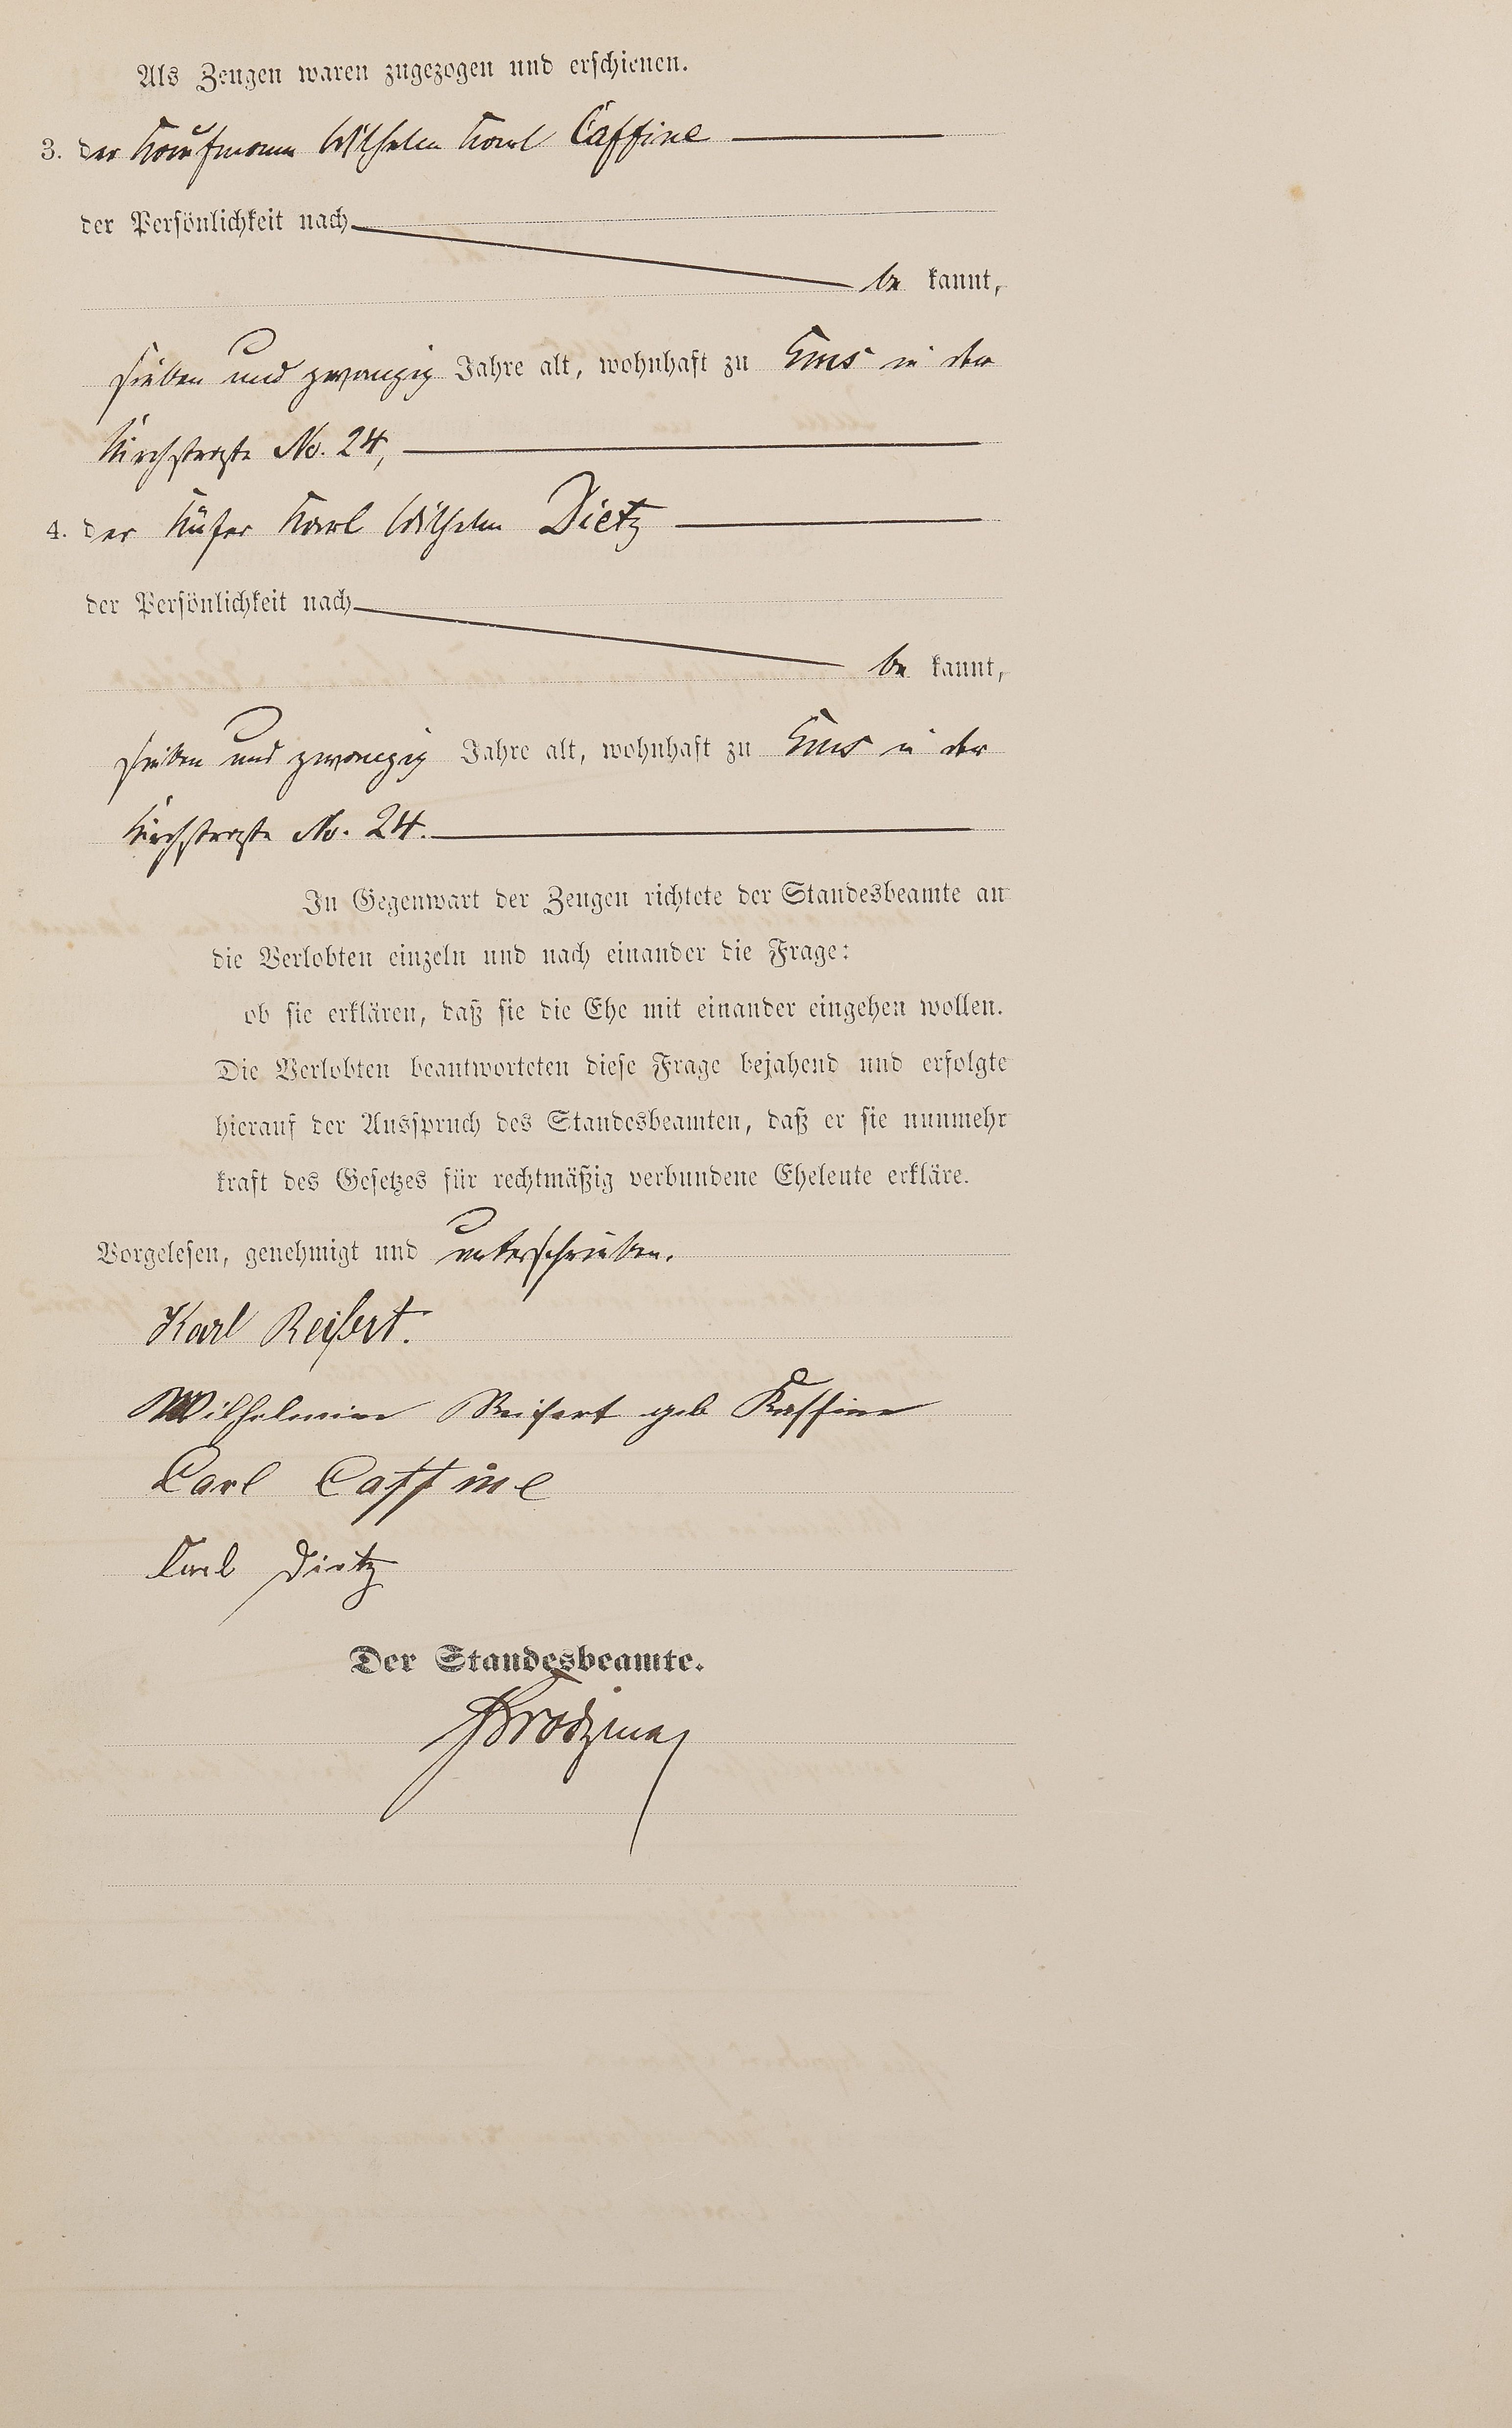 Als Zeugen waren zugezogen und erschienen.
3. der Kaufmann Wilhelm Karl Caffine
der Persönlichkeit nach
be kannt,
sieben und zwanzig Jahre alt, wohnhaft zu Ems in der
Kirchstraße No. 24,
4. der Küfer Karl Wilhelm Dietz
der Persönlichkeit nach
be kannt,
sieben und zwanzig Jahre alt, wohnhaft zu Ems in der
Kirchstraße No. 24.
In Gegenwart der Zeugen richtete der Standesbeamte an
die Verlobten einzeln und nach einander die Frage:
ob sie erklären, daß sie die Ehe mit einander eingehen wollen.
Die Verlobten beantworteten diese Frage bejahend und erfolgte
hierauf der Ausspruch des Standesbeamten, daß er sie nunmehr
kraft des Gesetzes für rechtmäßig verbundene Eheleute erkläre.
Vorgelesen, genehmigt und unterschrieben.
Karl Reifert.
Wilhelmine Reifert geb Kaffine
Carl Caffine
Karl Dietz
Der Standesbeamte.